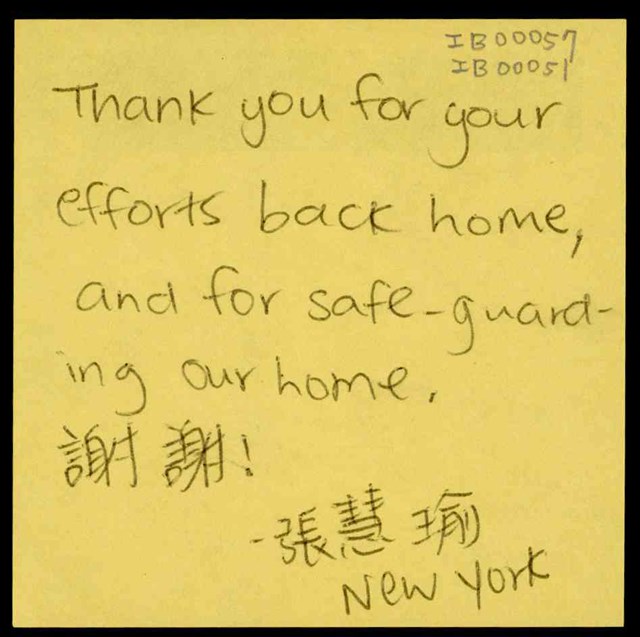 IB00057
IB00051
Thank you for your
efforts back home,
and for safe-guard-
ing our home.
謝謝!
-張慧瑜
New York